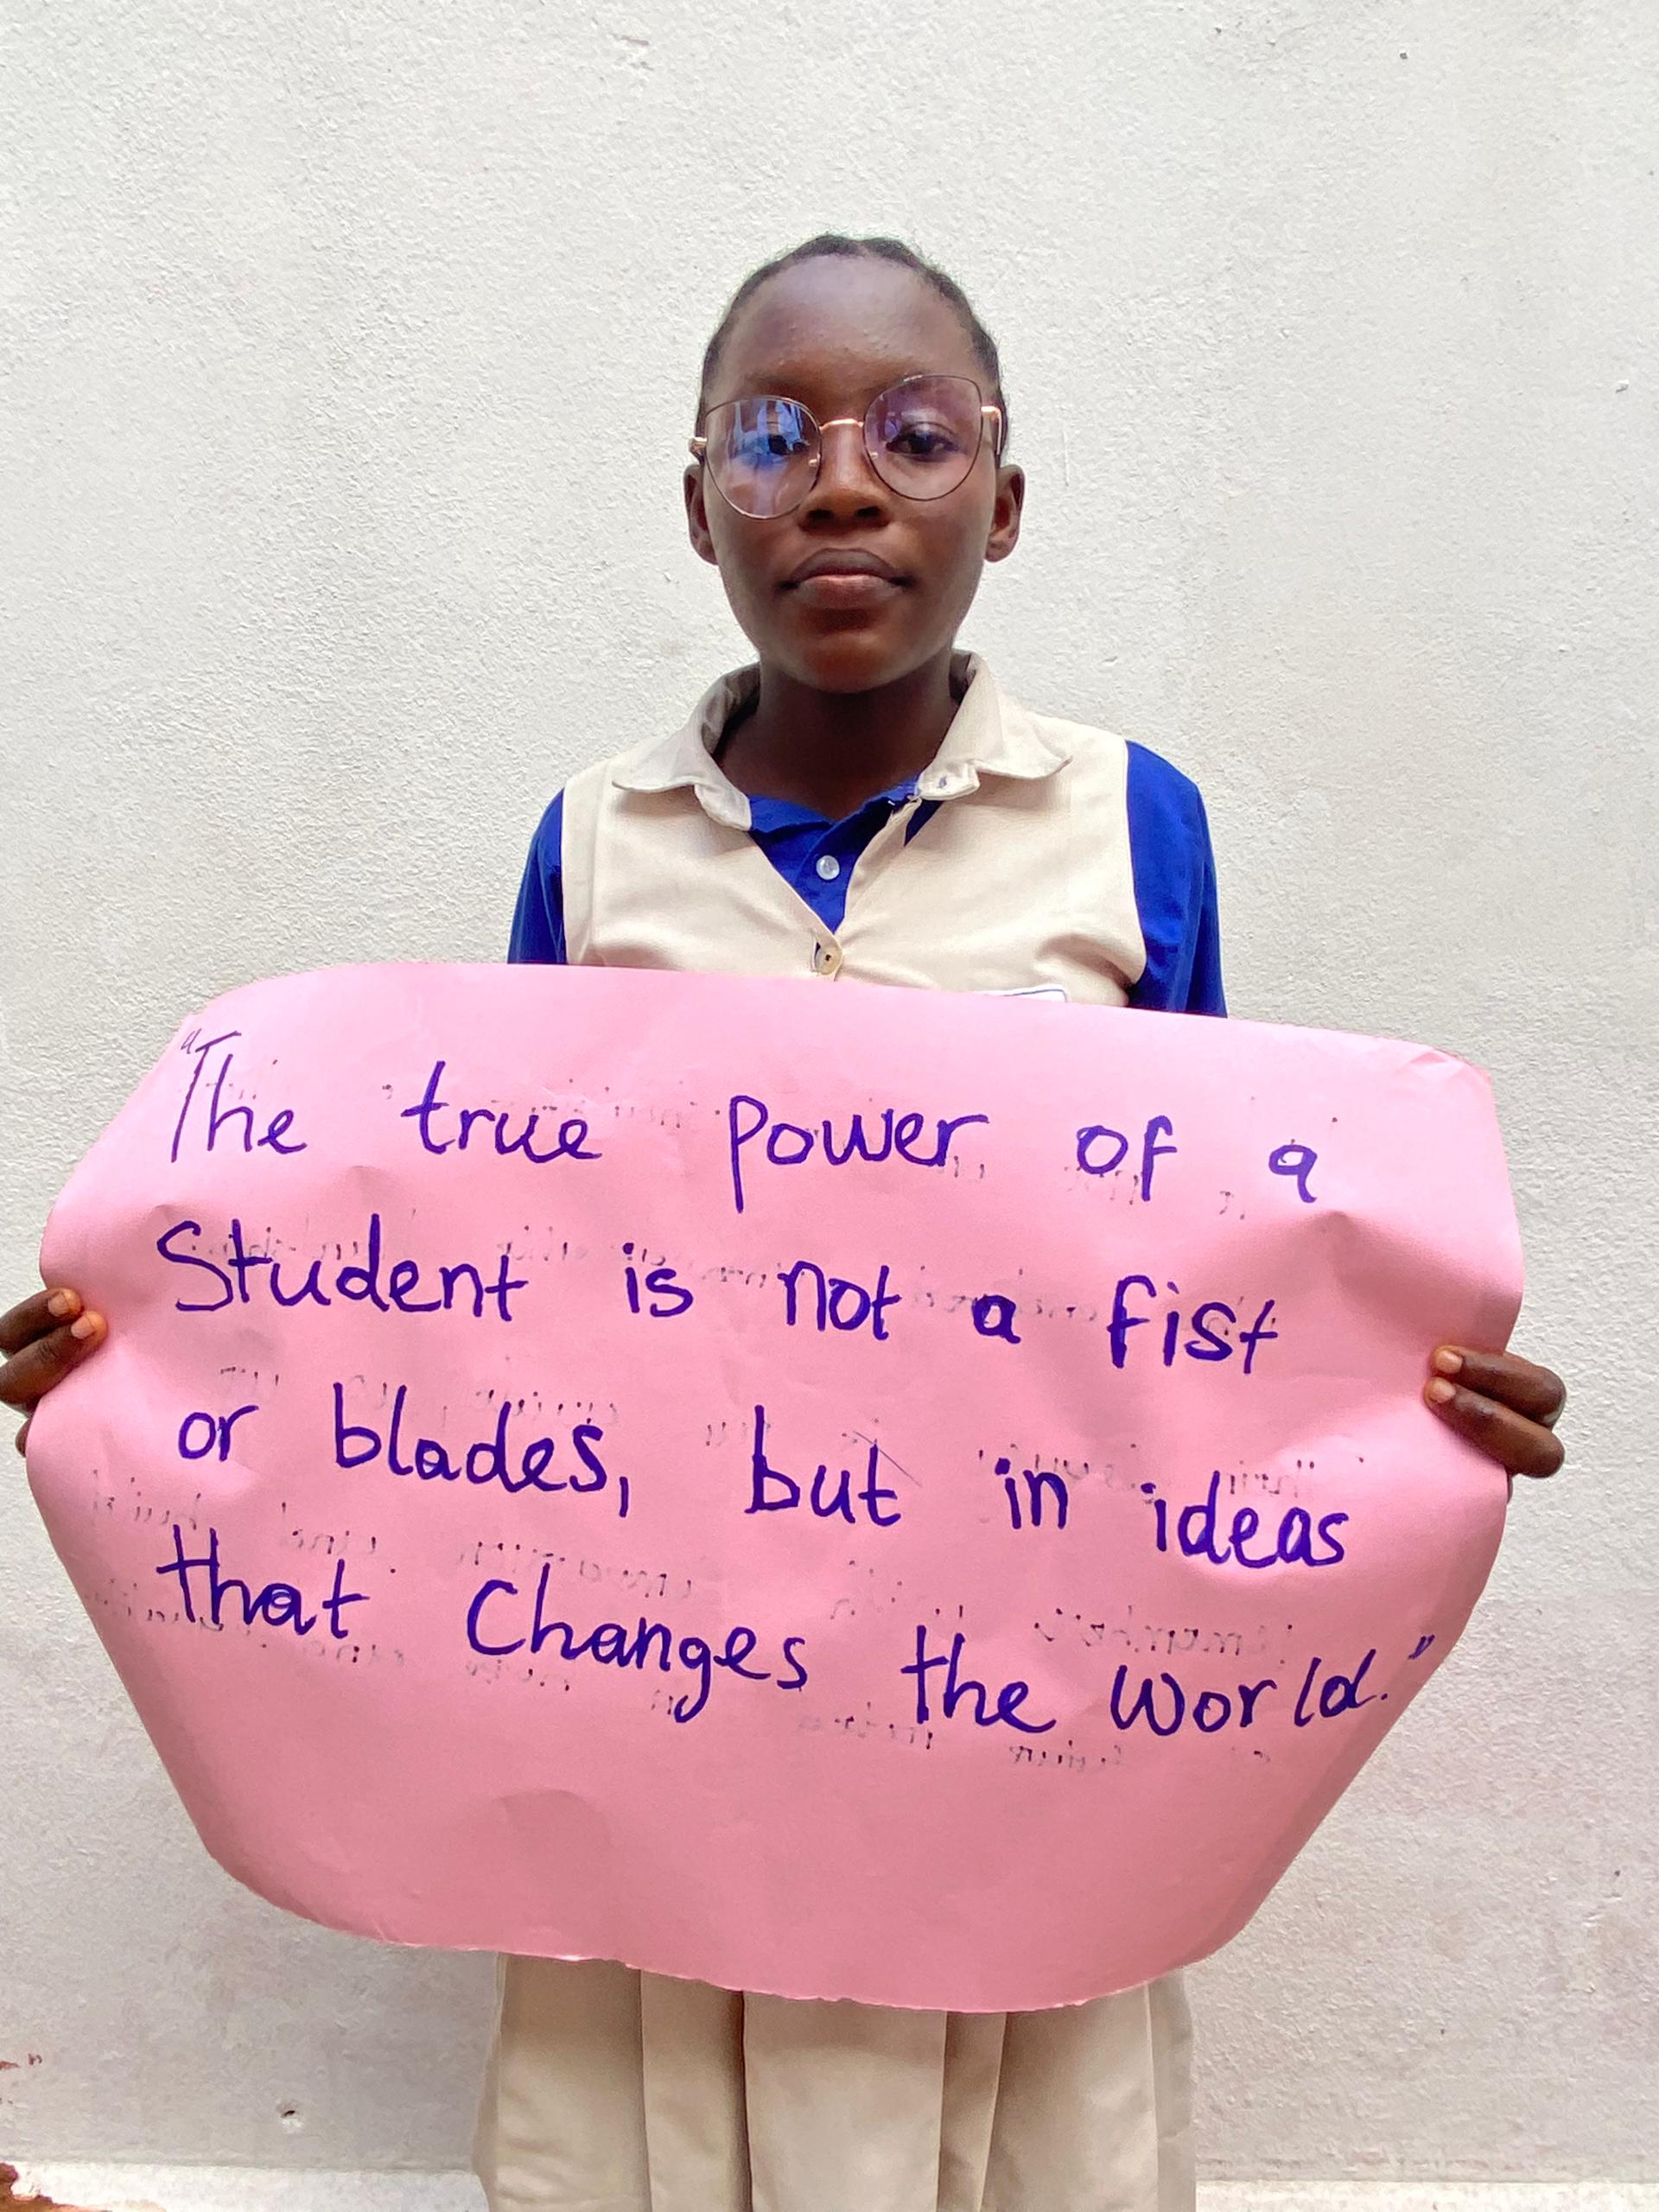 "The true power of a
Student is not a fist
or blades, but in ideas
that Changes the World."